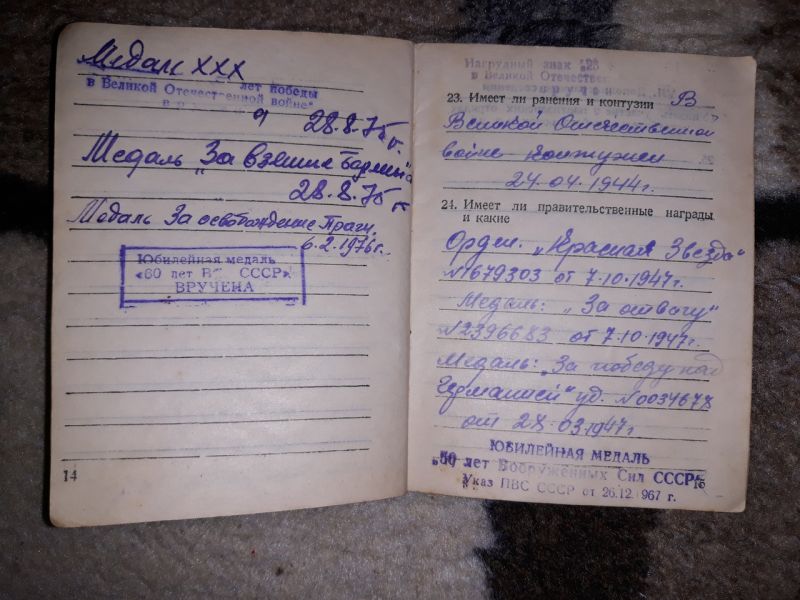 Медаль ХХХ
лет победы
в Великой Отечественной войне"
28.8.75г.
Медаль „За взятие Берлина"
28.8.75г
Медаль За освобождение Праги.
6.2.1976г.
Юбилейная медаль
«60 лет ВС СССР»
ВРУЧЕНА
14
Нагрудный знак „25
в Великой Отечествен
23. Имеет ли ранения и контузии В
Великой Отечественной
войне контужен
24.04.1944г.
24. Имеет ли правительственные награды
и какие
Орден. „Красная Звезда"
№1679303 от 7.10.1947г.
Медаль: „За отвагу"
№2396683 от 7.10.1947г.
Медаль: „За победу над
Германией" уд. №0034678
от 28.03.1947г.
ЮБИЛЕЙНАЯ МЕДАЛЬ
„50 лет Вооружённых Сил СССР"
Указ ПВС СССР от 26.12.1967 г.
15